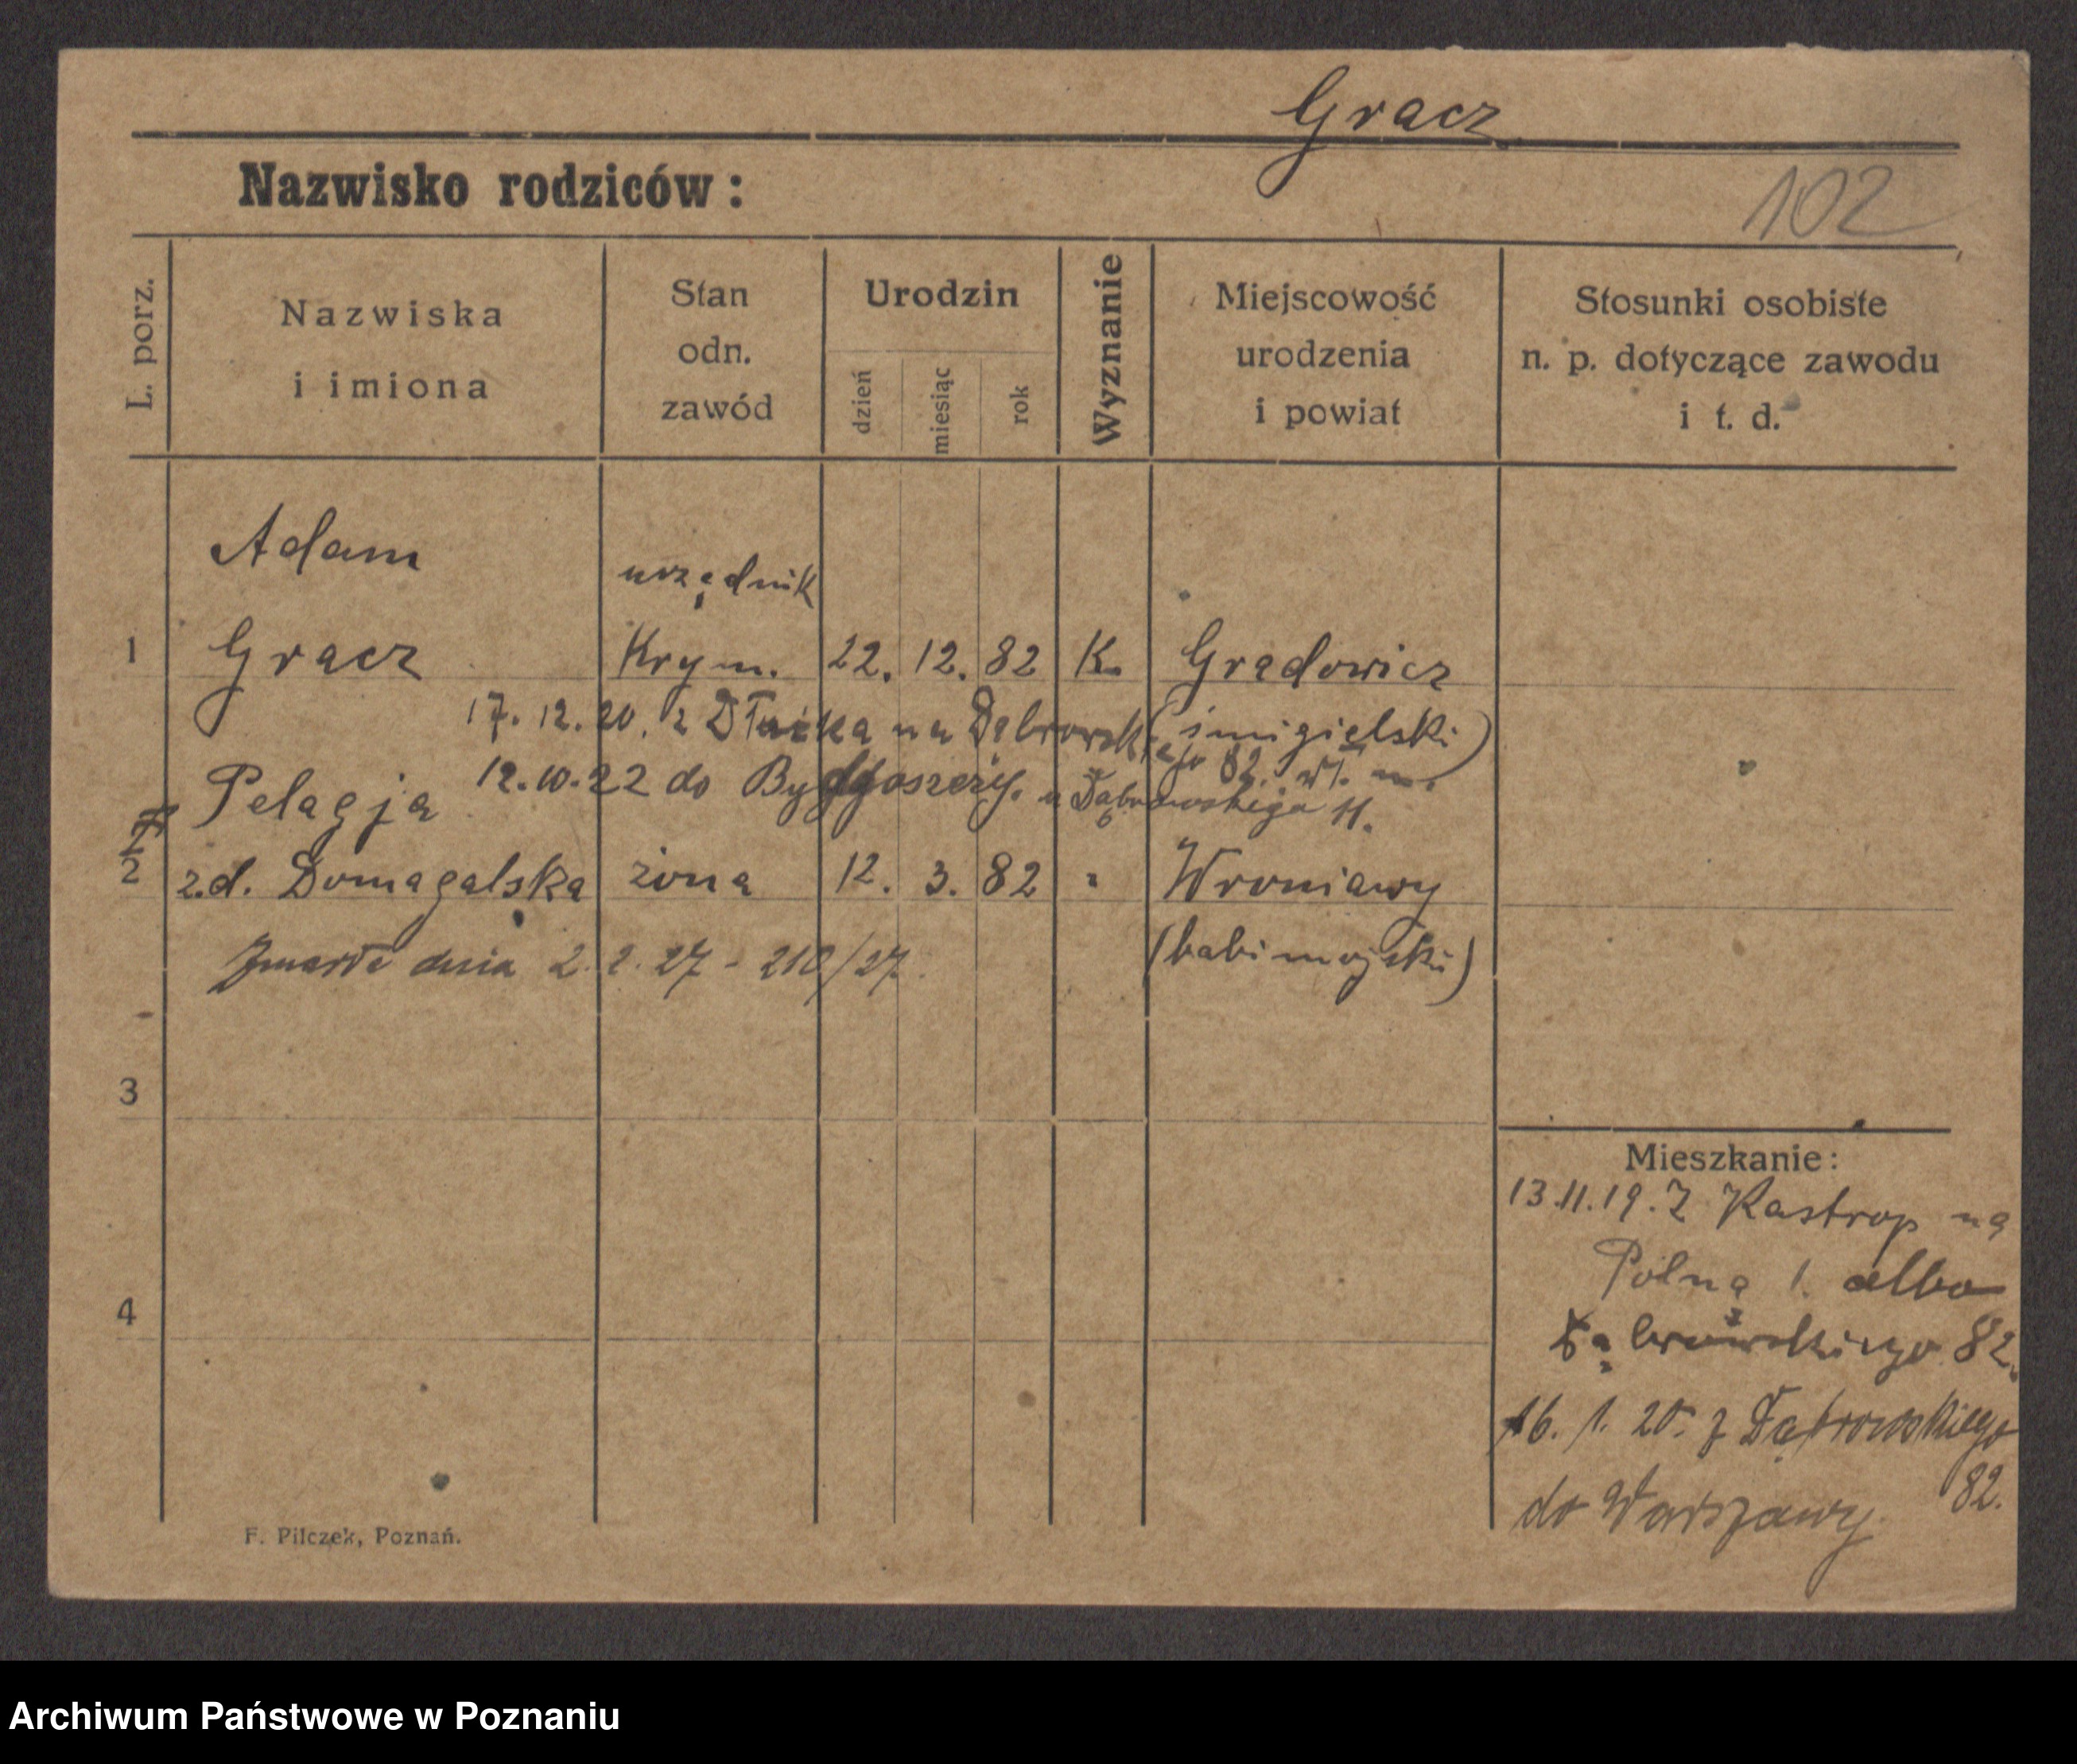 Gracz
Nazwisko rodziców:
102
L. porz.
Nazwiska
i imiona
Stan
odn.
zawód
Urodzin
dzień
miesiąc
rok
Wyznanie
Miejscowość
urodzenia
i powiat
Stosunki osobiste
n. p. dotyczące zawodu
i t. d.
Adam
urzędnik
1 Gracz Krym. 22. 12. 82 K. Gradowicz
(śmigielski)
17. 12. 20. z na Dąbrowskiego 82. wł. m.
12. 10. 22 do Bydgoszczy. Dąbrowskiego 11.
Pelagja
2 z.d. Domagalska żona 12. 3. 82 " Wroniawy
(babimojski)
Zmarła dnia 2. 2. 27 - 210/27.
3
4
Mieszkanie:
13.11.19. Z Kastrop na
Polną 1. albo
Dąbrowskiego 82.
16. 1. 20. z Dąbrowskiego
82.
do Warszawy.
F. Pilczek, Poznań.
Archiwum Państwowe w Poznaniu